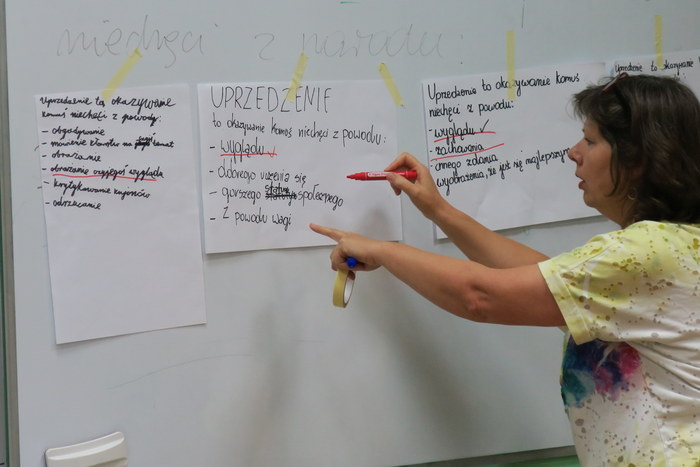 niechęci z powodu:
Uprzedzenie to okazywanie
komuś niechęci z powodu:
- obgadywanie
- mówienie na temat
- obrażanie
- obrażanie czyjegoś wyglądu
- krytykowanie
- odrzucanie
UPRZEDZENIE
to okazywanie komuś niechęci z powodu:
- wyglądu ✓
- dobrego uczenia się
- gorszego statusu społecznego
- Z powodu wagi
Uprzedzenie to okazywanie komuś
niechęci z powodu:
- wyglądu ✓
- zachowania
innego zdania
wyobrażenia, że jest się najlepszym
Uprzedzenie to okazywanie